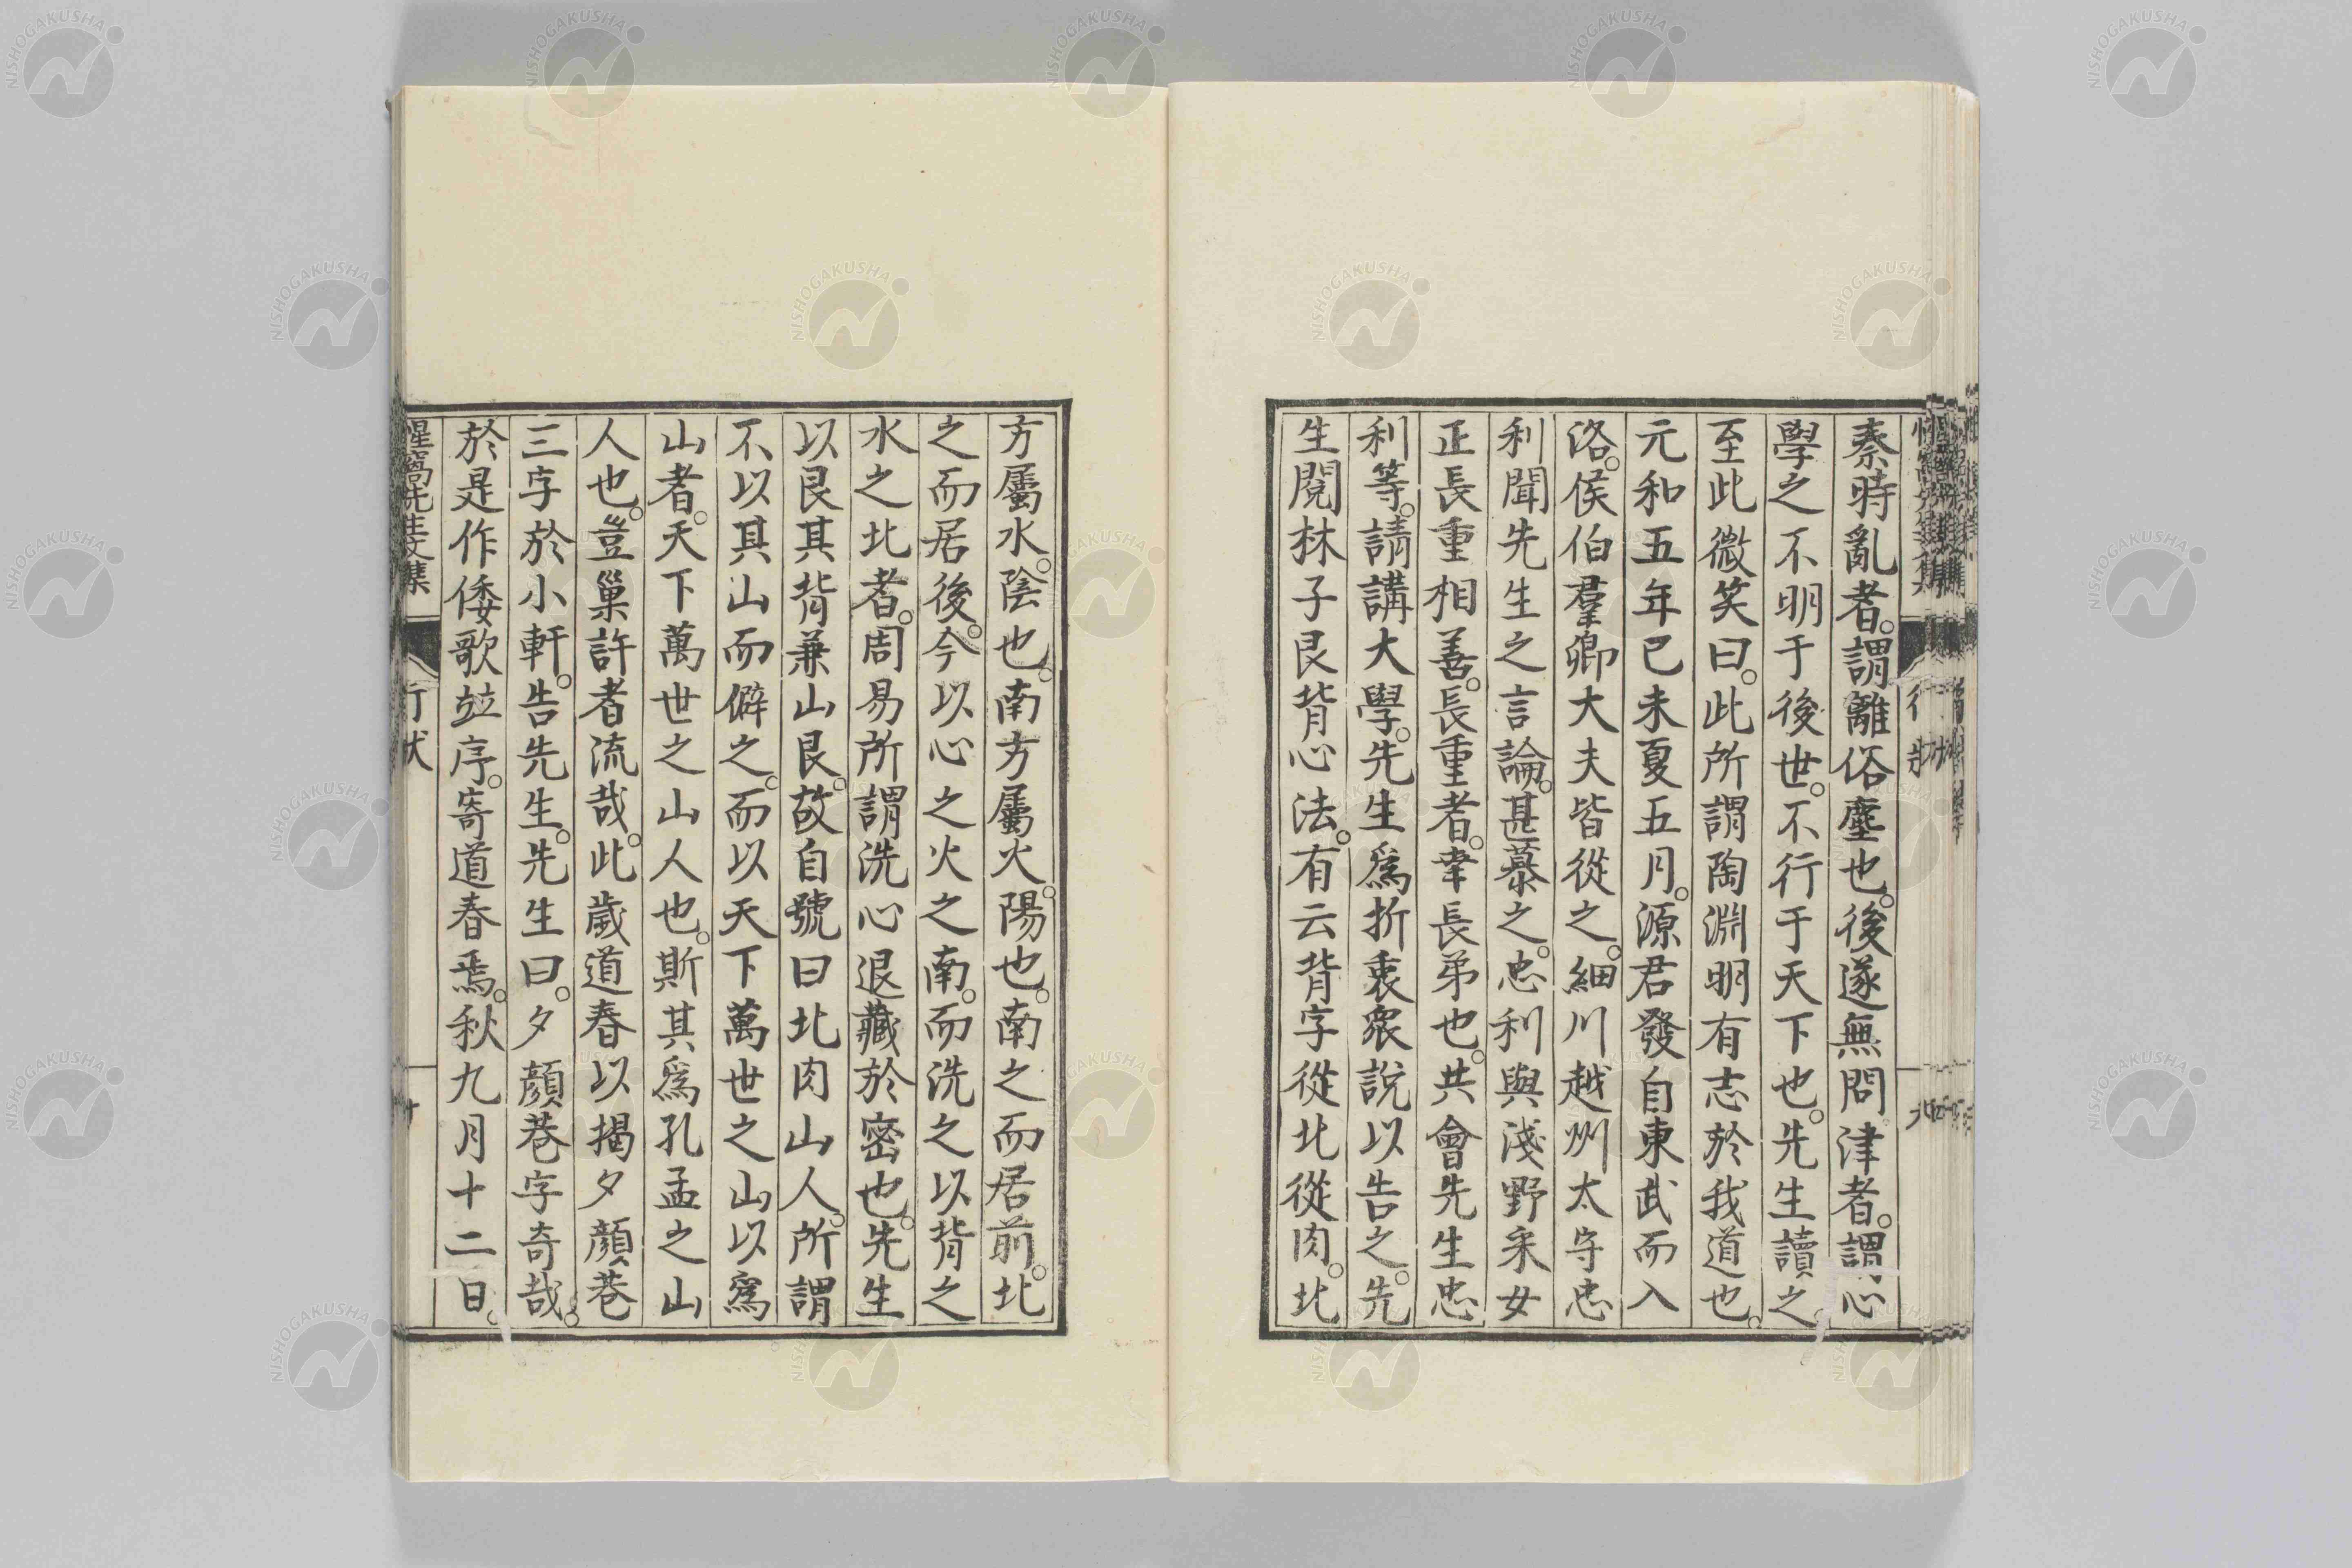 秦時亂者。謂離俗塵也。後遂無問津者。謂心
學之不明于後世。不行于天下也。先生讀之。
至此微笑曰。此所謂陶淵明有志於我道也。
元和五年已未夏五月。源君發自東武而入
洛。侯伯羣卿大夫皆從之。細川越州太守忠
利聞先生之言論。甚慕之。忠利與淺野采女
正長重相善。長重者。幸長弟也。共會先生忠
利等。請講大學。先生爲折衷衆說以告之。先
生閱林子艮背心法。有云背字從北從肉。北
方屬水。陰也。南方屬火。陽也。南之而居前。北
之而居後。今以心之火之南。而洗之以背之
水之北者。周易所謂洗心退藏於密也。先生
以艮其背兼山艮。故自號曰北肉山人。所謂
不以其山而僻之。而以天下萬世之山以爲
山者。天下萬世之山人也。斯其爲孔孟之山
人也。豈巢許者流哉。此歲道春以揭夕顏巷
三字於小軒。告先生。先生曰。夕顏巷字奇哉。
於是作倭歌竝序。寄道春焉。秋九月十二日。
惺窩先生文集 行狀